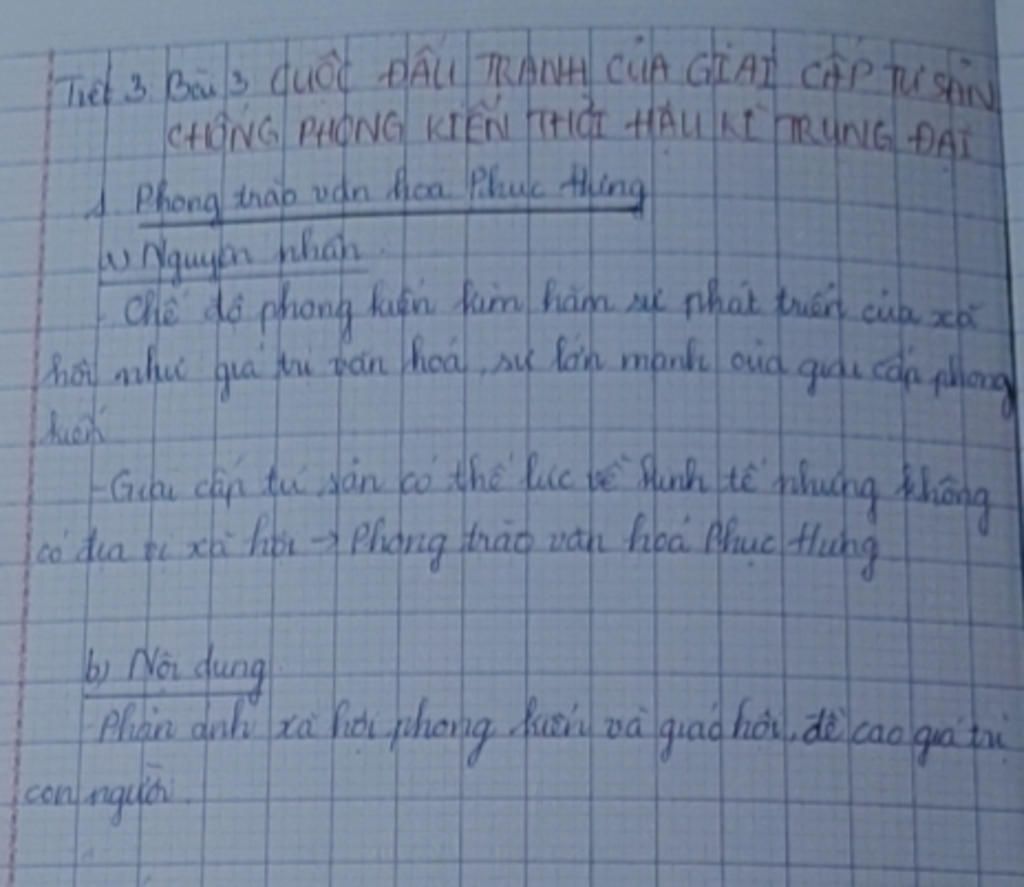 Tiết 3 Bài 3 CUỘC ĐẤU TRANH CỦA GIAI CẤP TƯ SẢN
CHỐNG PHONG KIẾN THỜI HẬU KÌ TRUNG ĐẠI
1. Phong trào văn hoá Phục Hưng
a) Nguyên nhân
- Chế độ phong kiến kìm hãm sự phát triển của xã
hội như giá trị văn hoá, sự lớn mạnh của giai cấp phong
kiến
- Giai cấp tư sản có thế lực về kinh tế nhưng không
có địa vị xã hội → Phong trào văn hoá Phục Hưng
b) Nội dung
- Phản ánh xã hội phong kiến và giáo hội, đề cao giá trị
con người.